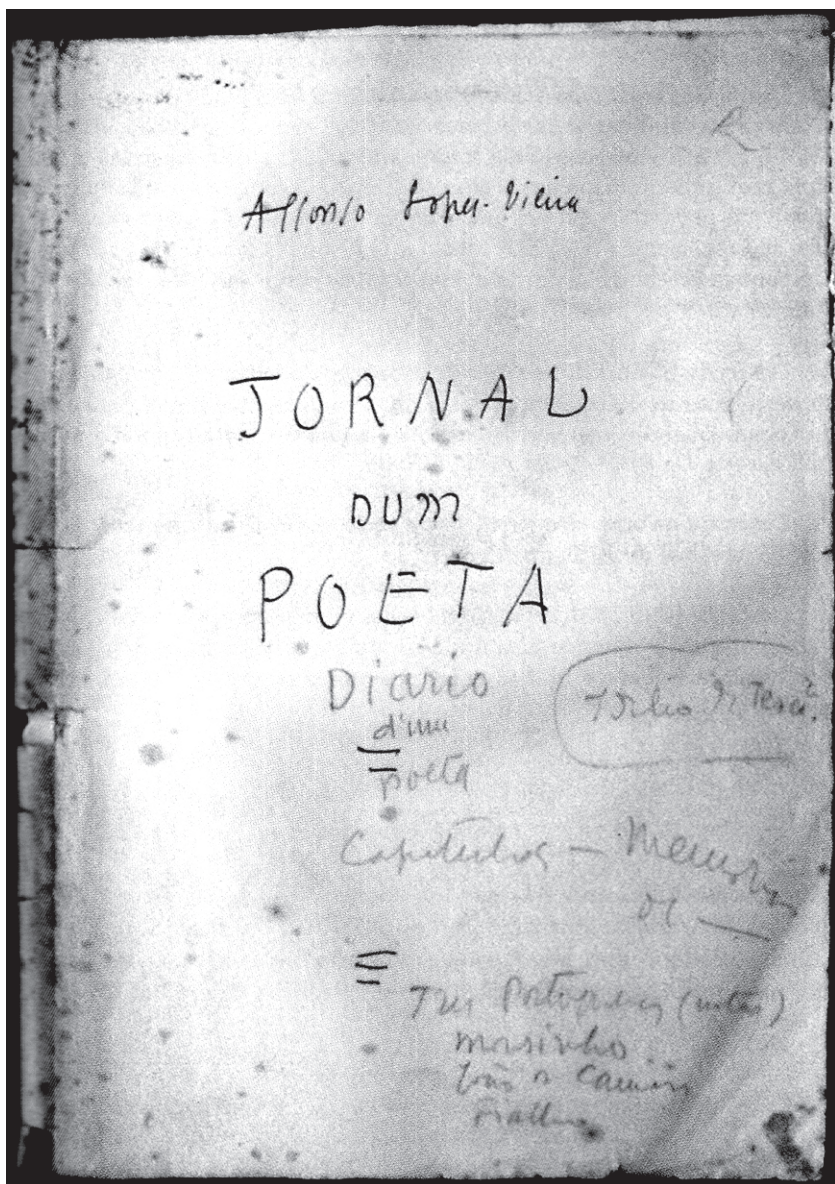 Affonso Lopes-Vieira
JORNAL
DUM
POETA
Diario
d'um
poeta
Capitulos — Memorias
de —
Tres Portugueses (notas)
Mousinho